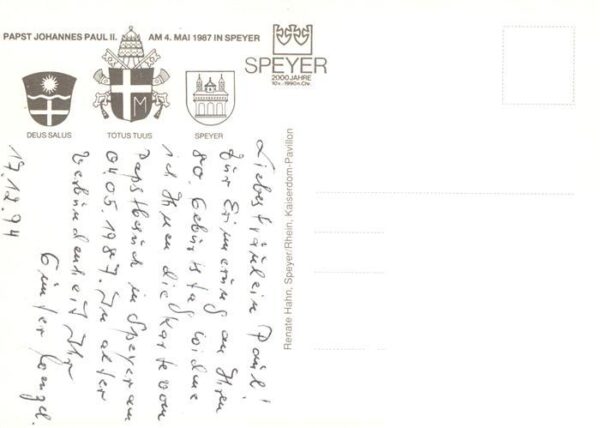 PAPST JOHANNES PAUL II. AM 4. MAI 1987 IN SPEYER
SPEYER
2000 JAHRE
10 v. - 1990 n. Chr.
DEUS SALUS
TOTUS TUUS
M
SPEYER
Liebes Fräulein Paul!
Zur Erinnerung an Ihren
80. Geburtsta widme
ich Ihnen die Karte vom
Papstbesuch in Speyer am
04.05.1987. In alter
Verbundenheit Ihr
Günter
17.12.94
Renate Hahn, Speyer/Rhein, Kaiserdom-Pavillon